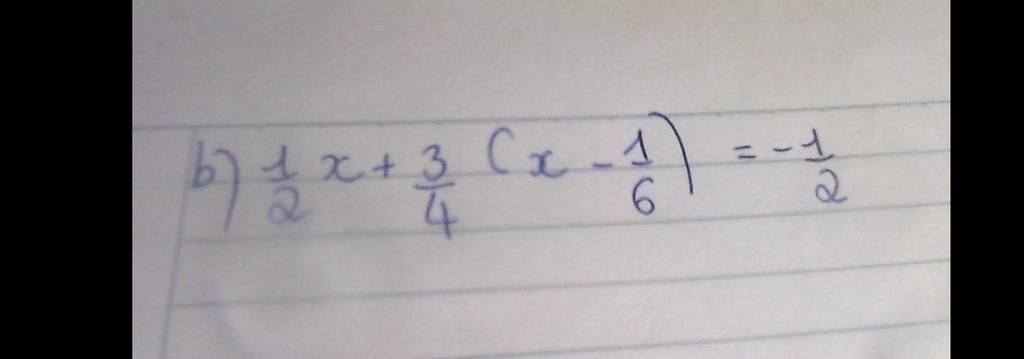 b) 1/2 x + 3/4 (x - 1/6) = -1/2